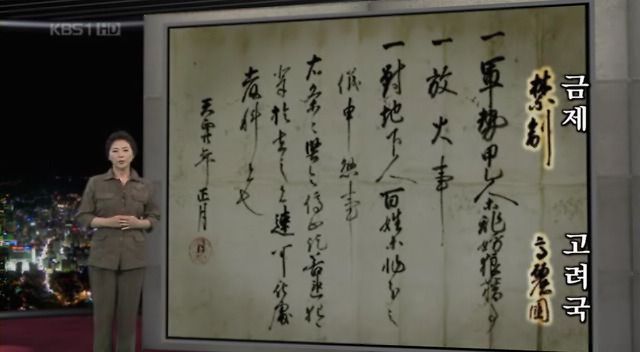 KBS1 HD
금제 고려국
禁制 高麗國
一軍勢甲乙人等乱妨狼藉事
一放火事
一對地下人百姓等非分之
儀申懸事
右条々堅令停止訖若違犯
輩於在之者速可被處
嚴科者也
天正廿年正月